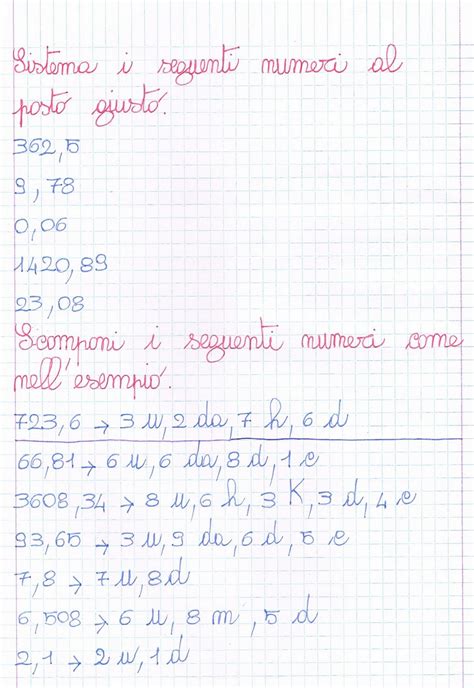 Sistema i seguenti numeri al
posto giusto.
362,5
9,78
0,06
1420,89
23,08
Scomponi i seguenti numeri come
nell'esempio.
723,6 → 3 u, 2 da, 7 h, 6 d
66,81 → 6 u, 6 da, 8 d, 1 c
3608,34 → 8 u, 6 h, 3 K, 3 d, 4 c
93,65 → 3 u, 9 da, 6 d, 5 c
7,8 → 7 u, 8 d
6,508 → 6 u, 8 m, 5 d
2,1 → 2 u, 1 d